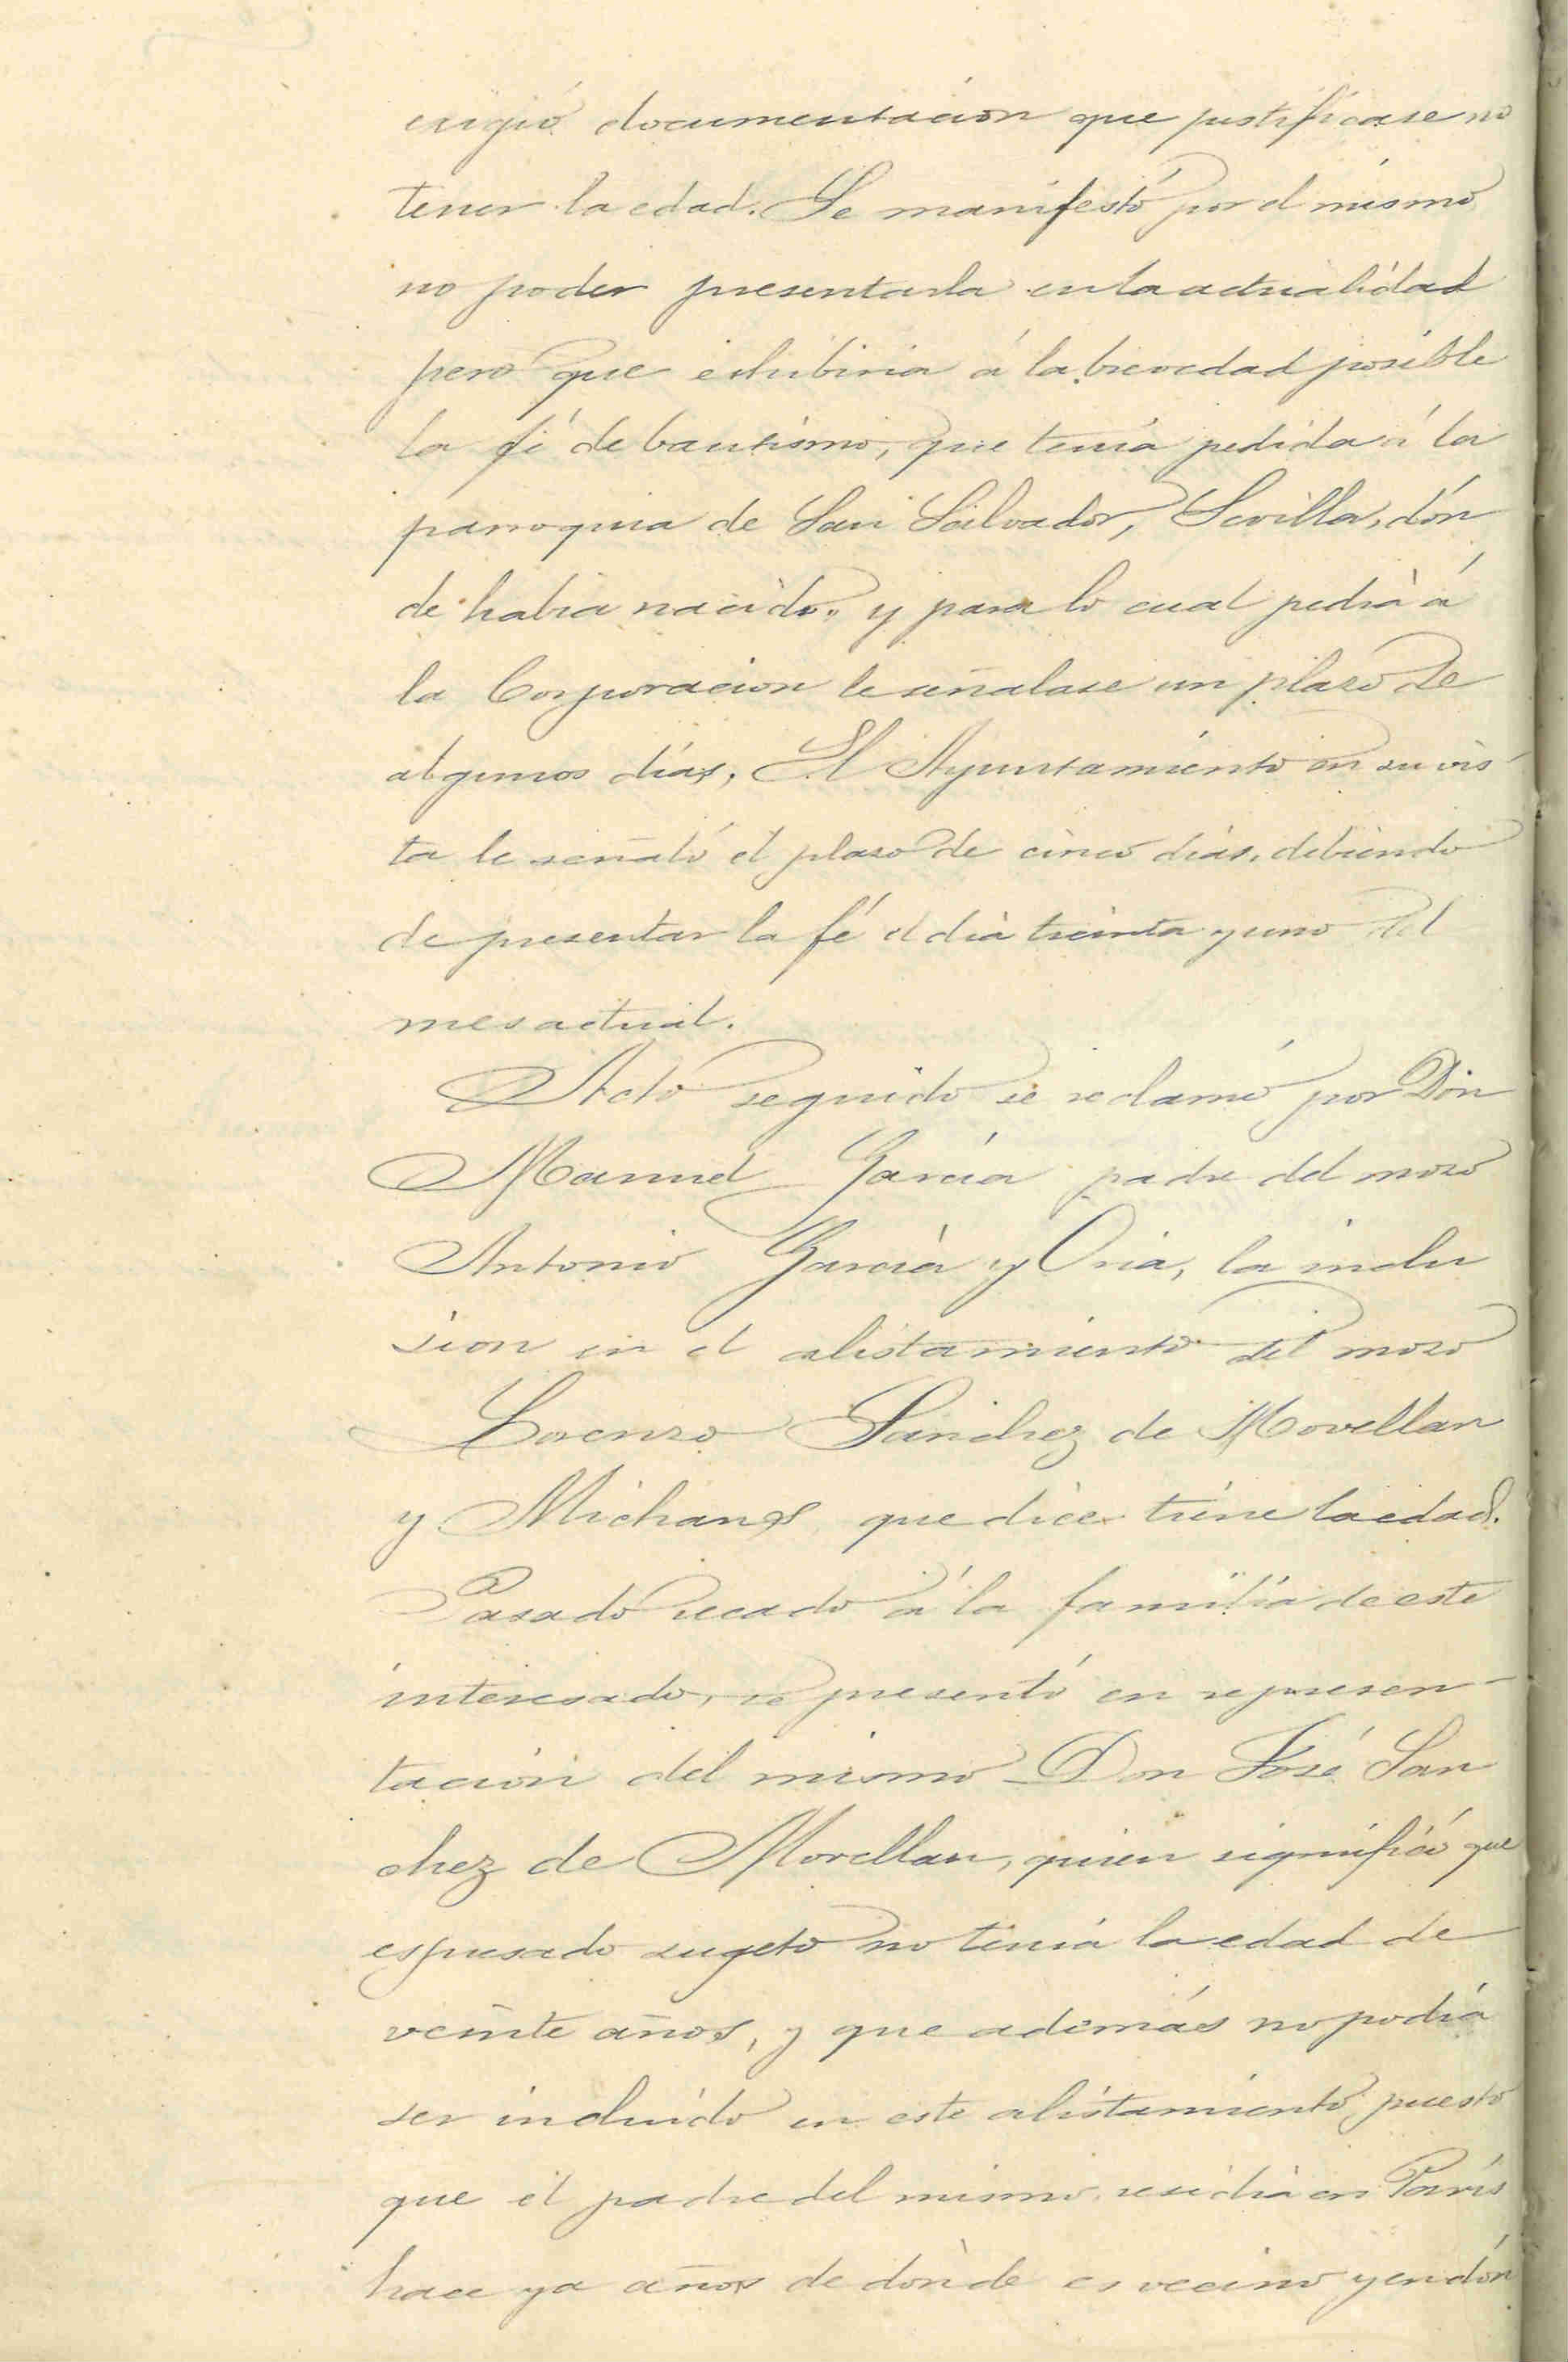 exigió documentacion que justificase no
tener la edad. Se manifestó por el mismo
no poder presentarla en la actualidad
pero que eshibiria á la brevedad posible
la fé de bautismo, que tenia pedida á la
parroquia de San Salvador, Sevilla, dón
de habia nacido, y para lo cual pedia á
la Corporacion le señalase un plazo de
algunos dias, El Ayuntamiento en su vis
ta le señaló el plazo de cinco dias, debiendo
de presentar la fé el dia treinta y uno del
mes actual.
Acto seguido se reclamó por Don
Manuel García padre del mozo
Antonio García y Oria, la inclu
sion en el alistamiento del mozo
Lorenzo Sanchez de Movellan
y que dice tiene la edad.
Pasado recado á la familia de este
interesado, se presentó en represen-
tación del mismo Don José San
chez de Movellan, quien significó que
espresado sugeto no tenia la edad de
veinte años, y que además no podia
ser incluido en este alistamiento, puesto
que el padre del mismo, residia en París
hace ya años de donde es vecino y en dón